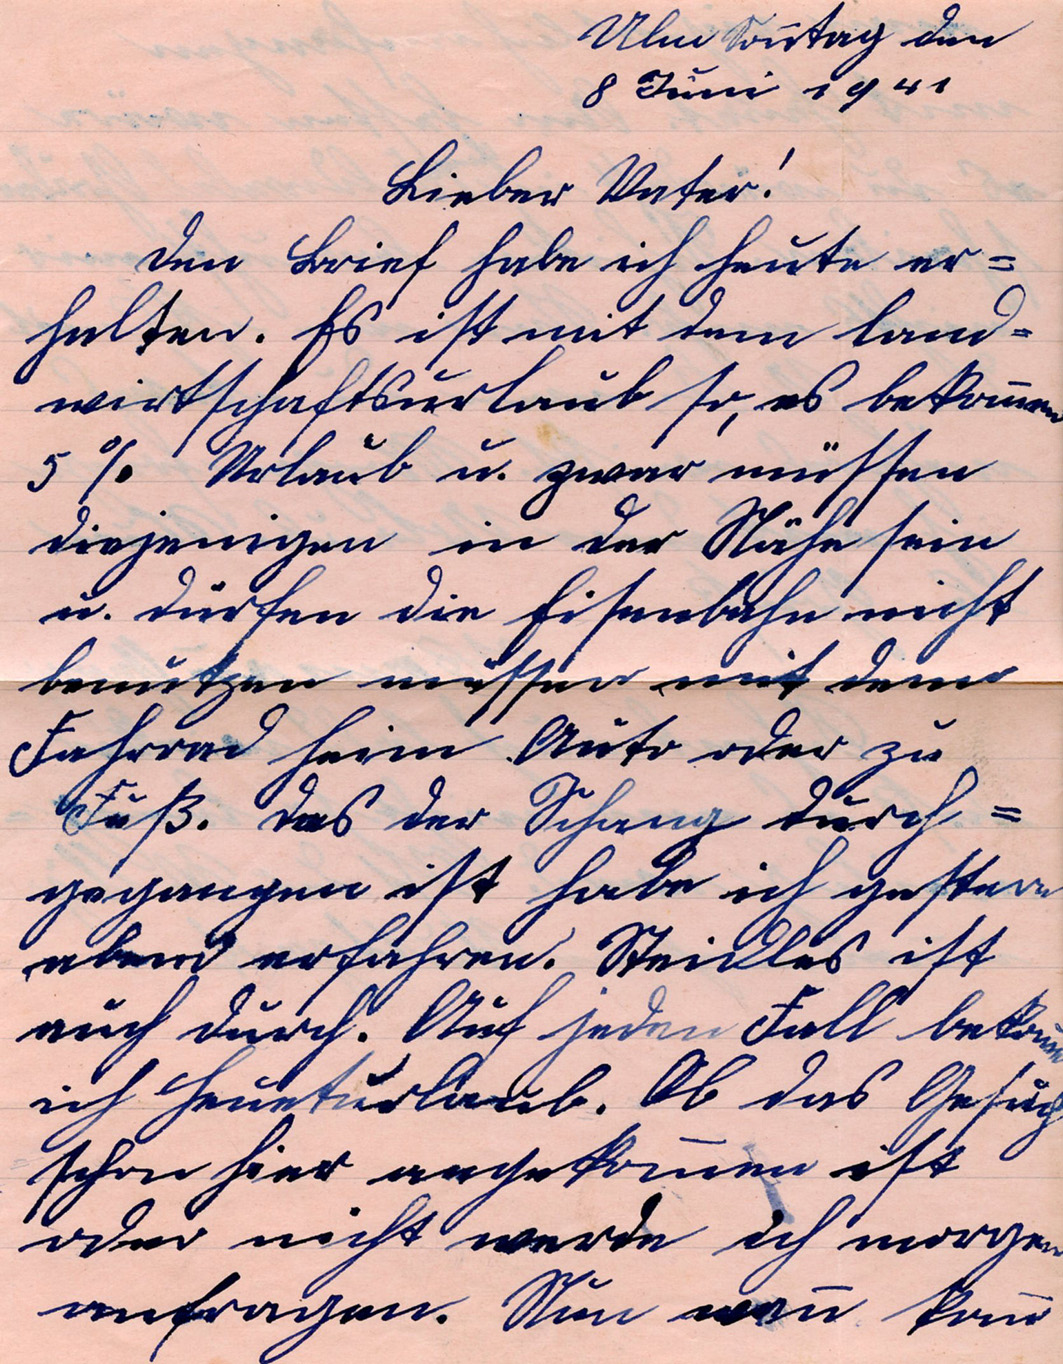 Ulm Soñtag den
8 Juni 1941
Lieber Vater!
Den Brief habe ich heute er=
halten. Es ist mit dem land=
wirtschaftsurlaub so, es bekom̄en
5 % Urlaub u. zwar müssen
diejenigen in der Nähe sein
u. dürfen die Eisenbahn nicht
benutzen müssen mit dem
Fahrrad heim Auto oder zu
Fuß. Das der Schang durch=
gegangen ist habe ich gestern
abend erfahren. Steidles ist
auch durch. Auf jeden Fall bekom̄e
ich Heueturlaub. Ob das Gesuch
schon hier angekom̄en ist
oder nicht werde ich morgen
anfragen. Nun wan̄ kan̄